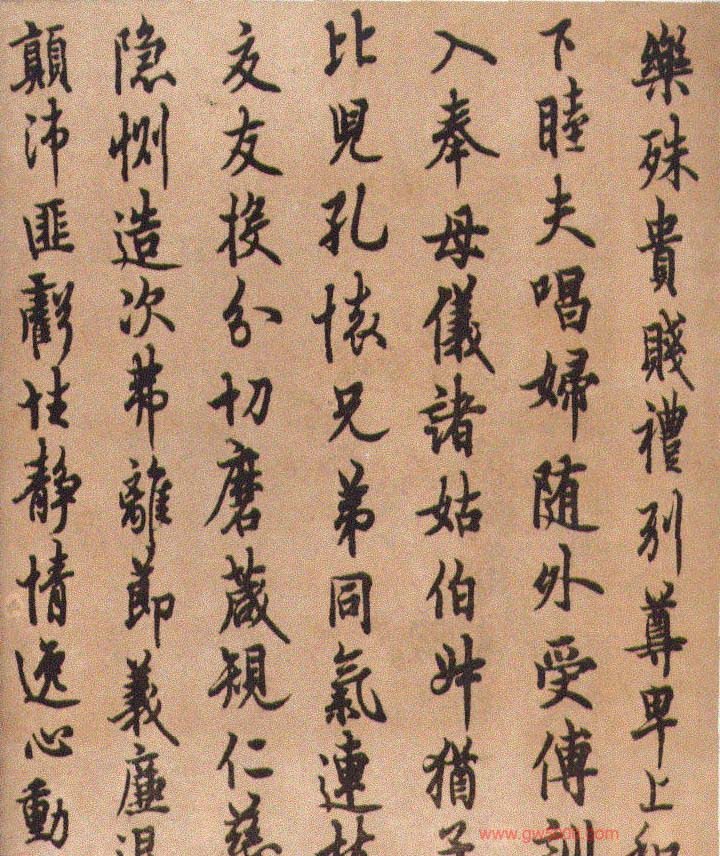 樂殊貴賤禮別尊卑上和
下睦夫唱婦随外受傅訓
入奉母儀諸姑伯叔猶子
比兒孔懐兄弟同氣連枝
交友投分切磨葴規仁慈
隐惻造次弗離節義廉退
顛沛匪虧性静情逸心動